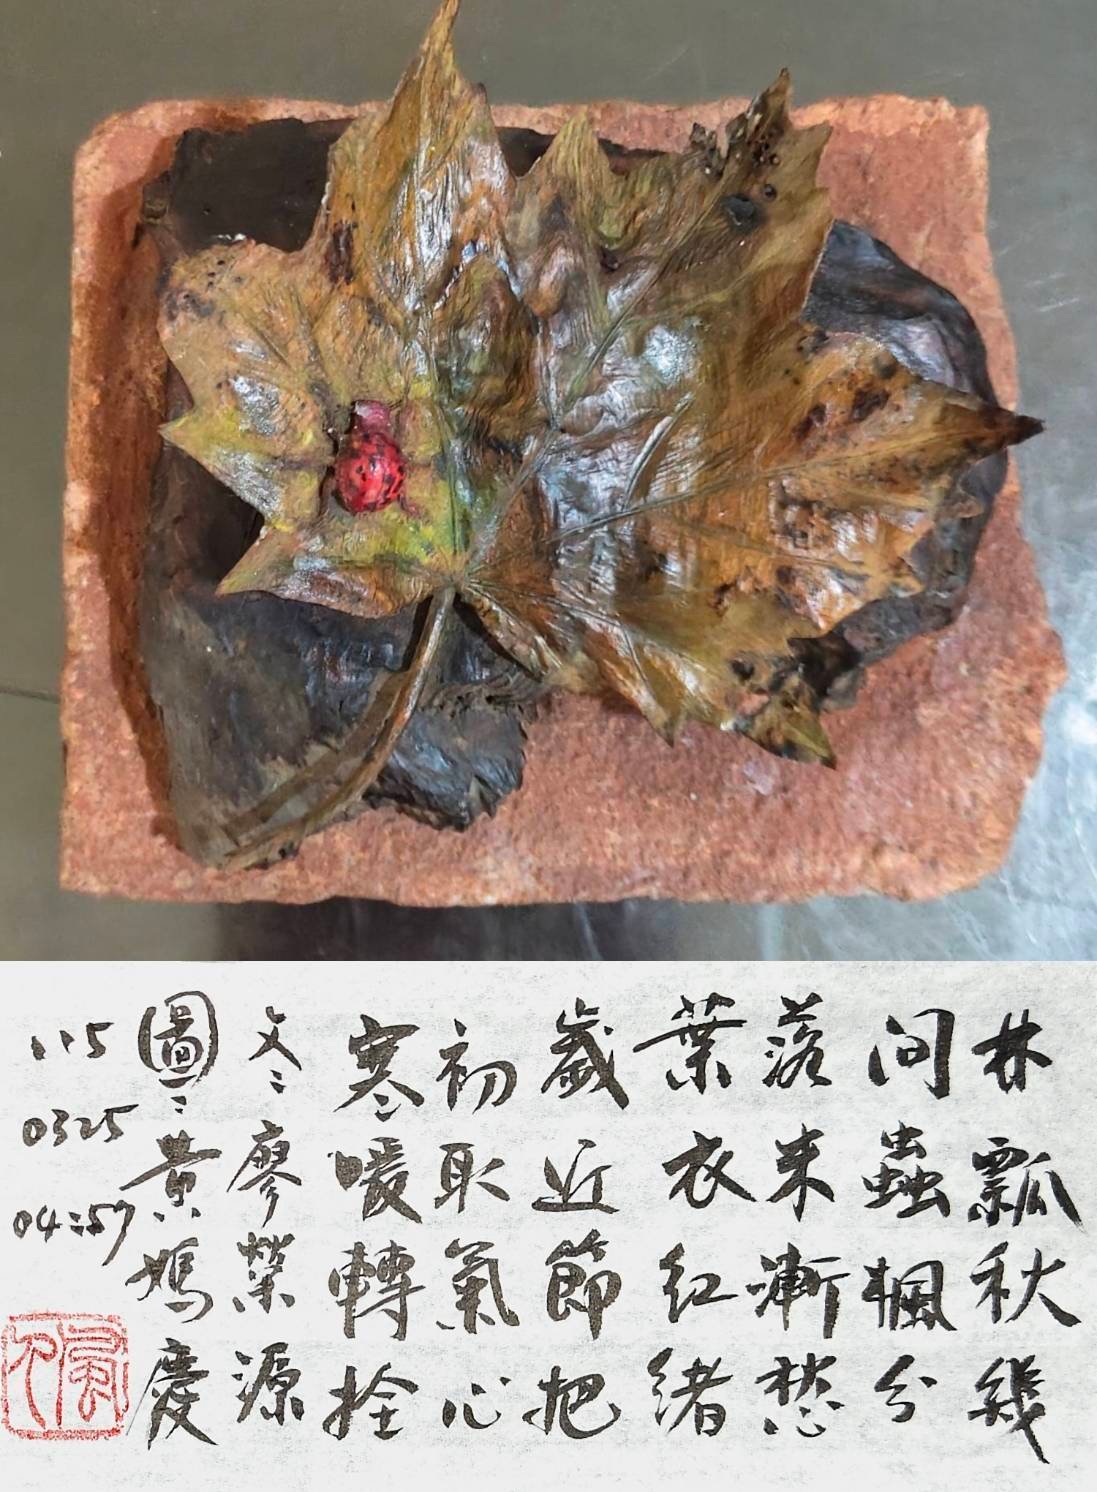 林瓢秋幾
問蟲楓分
落未漸愁
葉衣紅緒
歲近節把
初取氣心
寒暖轉拴
文:廖榮源
圖:黃媽慶
115
0325
04:57